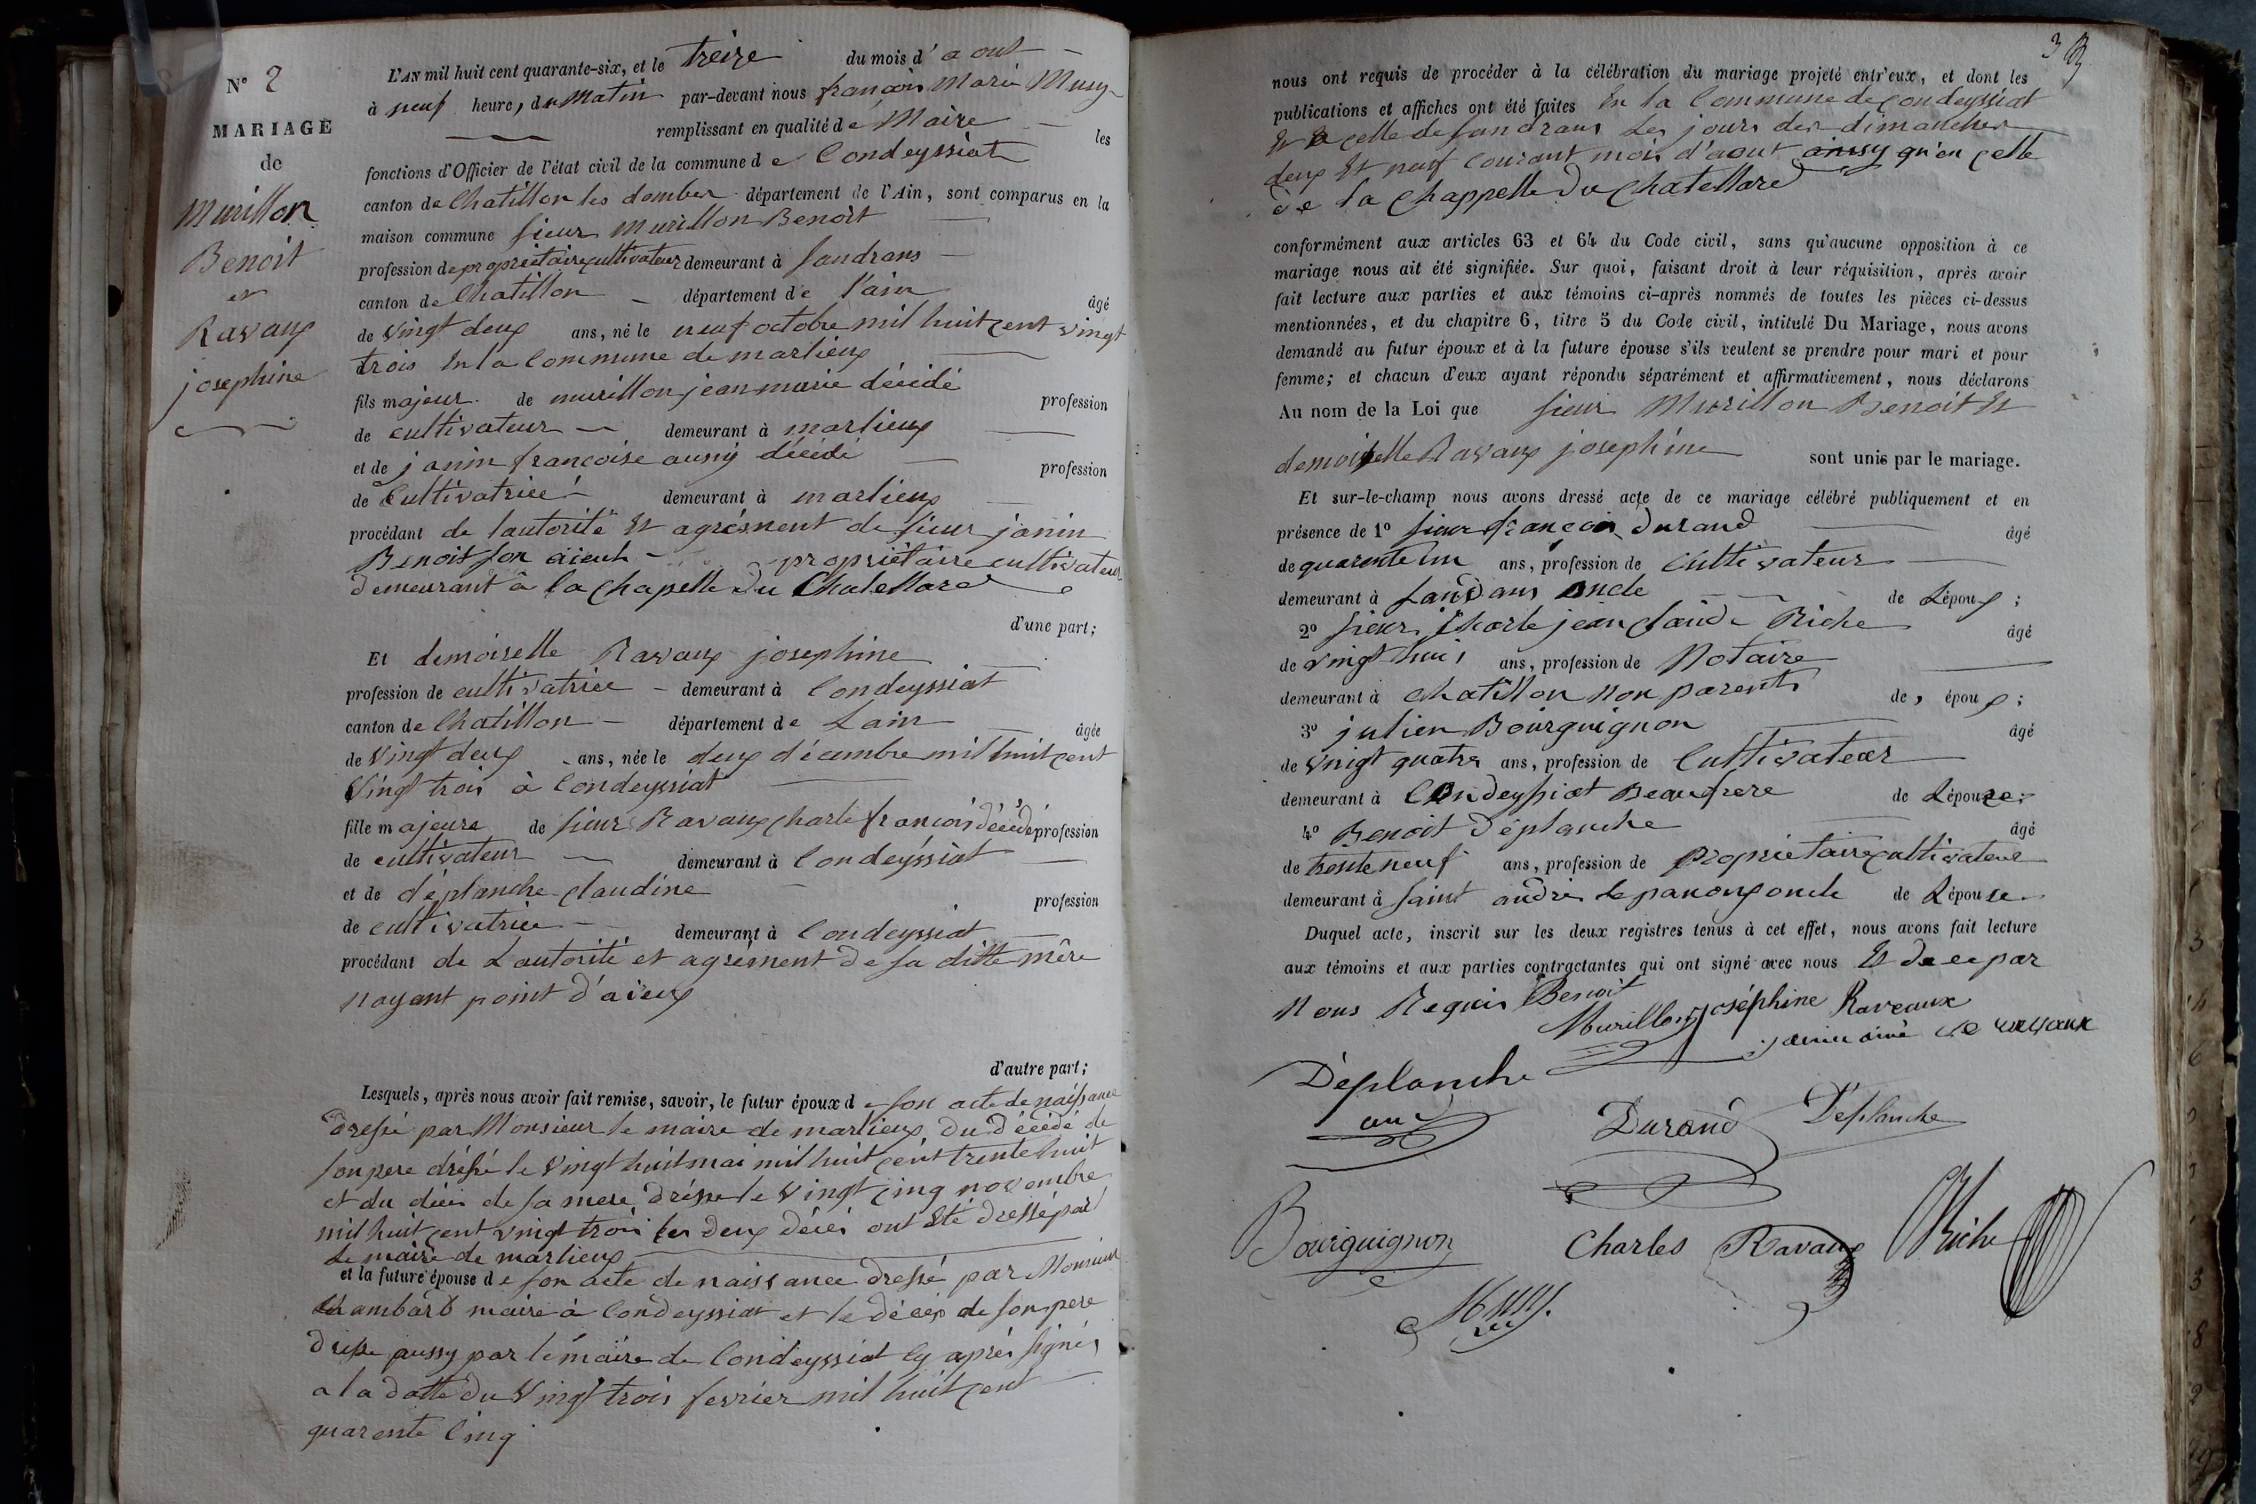 N° 2
MARIAGE
de
Murillon
Benoit
et
Ravaux
josephine
L'AN mil huit cent quarante-six, et le treize du mois d'aout
à neuf heures, du Matin par-devant nous françois Marie Musy
remplissant en qualité de Maire les
fonctions d'Officier de l'état civil de la commune de Condeyssiat
canton de Chatillon les dombes département de l'Ain, sont comparus en la
maison commune sieur Murillon Benoit
profession de propriétaire cultivateur demeurant à Sandrans
canton de Chatillon département de l'ain âgé
de vingt deux ans, né le neuf octobre mil huit cent vingt
trois en la Commune de marlieux
fils majeur de murillon jean marie décédé profession
de cultivateur demeurant à marlieux
et de janin françoise aussy décédé profession
de Cultivatrice demeurant à marlieux
procédant de lautorité Et agrésment de sieur janin
Benoit son aieul propriétaire cultivateur
demeurant à la chapelle du Chatellard
d'une part;
Et demoiselle Ravaux josephine
profession de cultivatrice demeurant à Condeyssiat
canton de Chatillon département de Lain âgée
de Vingt deux ans, née le deux décembre mil huit cent
Vingt trois à Condeyssiat
fille majeure de sieur Ravaux charle françois décédé profession
de cultivateur demeurant à Condeyssiat
et de déplanche claudine profession
de cultivatrice demeurant à Condeyssiat
procédant de L'autorité et agrésment de sa ditte mère
Nayant point d'aïeux
d'autre part;
Lesquels, après nous avoir fait remise, savoir, le futur époux de son acte de naissance
dressé par Monsieur le maire de marlieux du décédé de
son pere dréssé le Vingt huit mai mil huit cent trente huit
et du décès de sa mere dressé le Vingt cinq novembre
mil huit cent vingt trois les deux décès ont Eté dressé par
Le maire de marlieux
et la future épouse de son acte de naissance dressé par Monsieur
Chambard maire à Condeyssiat et le décès de son pere
dressé aussy par le maire de Condeyssiat Cy après signés
a la datte du Vingt trois fevrier mil huit cent
quarente Cinq
3
nous ont requis de procéder à la célébration du mariage projeté entr'eux, et dont les
publications et affiches ont été faites En la Commune de Condeyssiat
Et a celle de Sandrans Les jours des dimanches
deux Et neuf courant mois d'aout aussy qu'en celle
de la Chappelle du Chatellard
conformément aux articles 63 et 64 du Code civil, sans qu'aucune opposition à ce
mariage nous ait été signifiée. Sur quoi, faisant droit à leur réquisition, après avoir
fait lecture aux parties et aux témoins ci-après nommés de toutes les pièces ci-dessus
mentionnées, et du chapitre 6, titre 5 du Code civil, intitulé Du Mariage, nous avons
demandé au futur époux et à la future épouse s'ils veulent se prendre pour mari et pour
femme; et chacun d'eux ayant répondu séparément et affirmativement, nous déclarons
Au nom de la Loi que sieur Murillon Benoit Et
demoiselle Ravaux josephine sont unis par le mariage.
Et sur-le-champ nous avons dressé acte de ce mariage célébré publiquement et en
présence de 1° sieur françois Durand âgé
de quarente un ans, profession de Cultivateur
demeurant à Sandrans oncle de Lépoux;
2° sieur Charle jean claude Riche âgé
de vingt huit ans, profession de Notaire
demeurant à Chatillon non parents de, époux;
3° julien Bourguignon âgé
de Vingt quatre ans, profession de Cultivateur
demeurant à Condeyssiat Beaufrere de Lépouse;
4° Benoit Déplanche âgé
de trente neuf ans, profession de Propriétaire cultivateur
demeurant à Saint andré Le panoux oncle de Lépouse
Duquel acte, inscrit sur les deux registres tenus à cet effet, nous avons fait lecture
aux témoins et aux parties contractantes qui ont signé avec nous Et de ce par
Nous Requis
Benoit
Murillon Joséphine Raveaux
janin ainé
Déplanche
Durand Déplanche
Bourguignon Charles Ravaux Riche
Musy